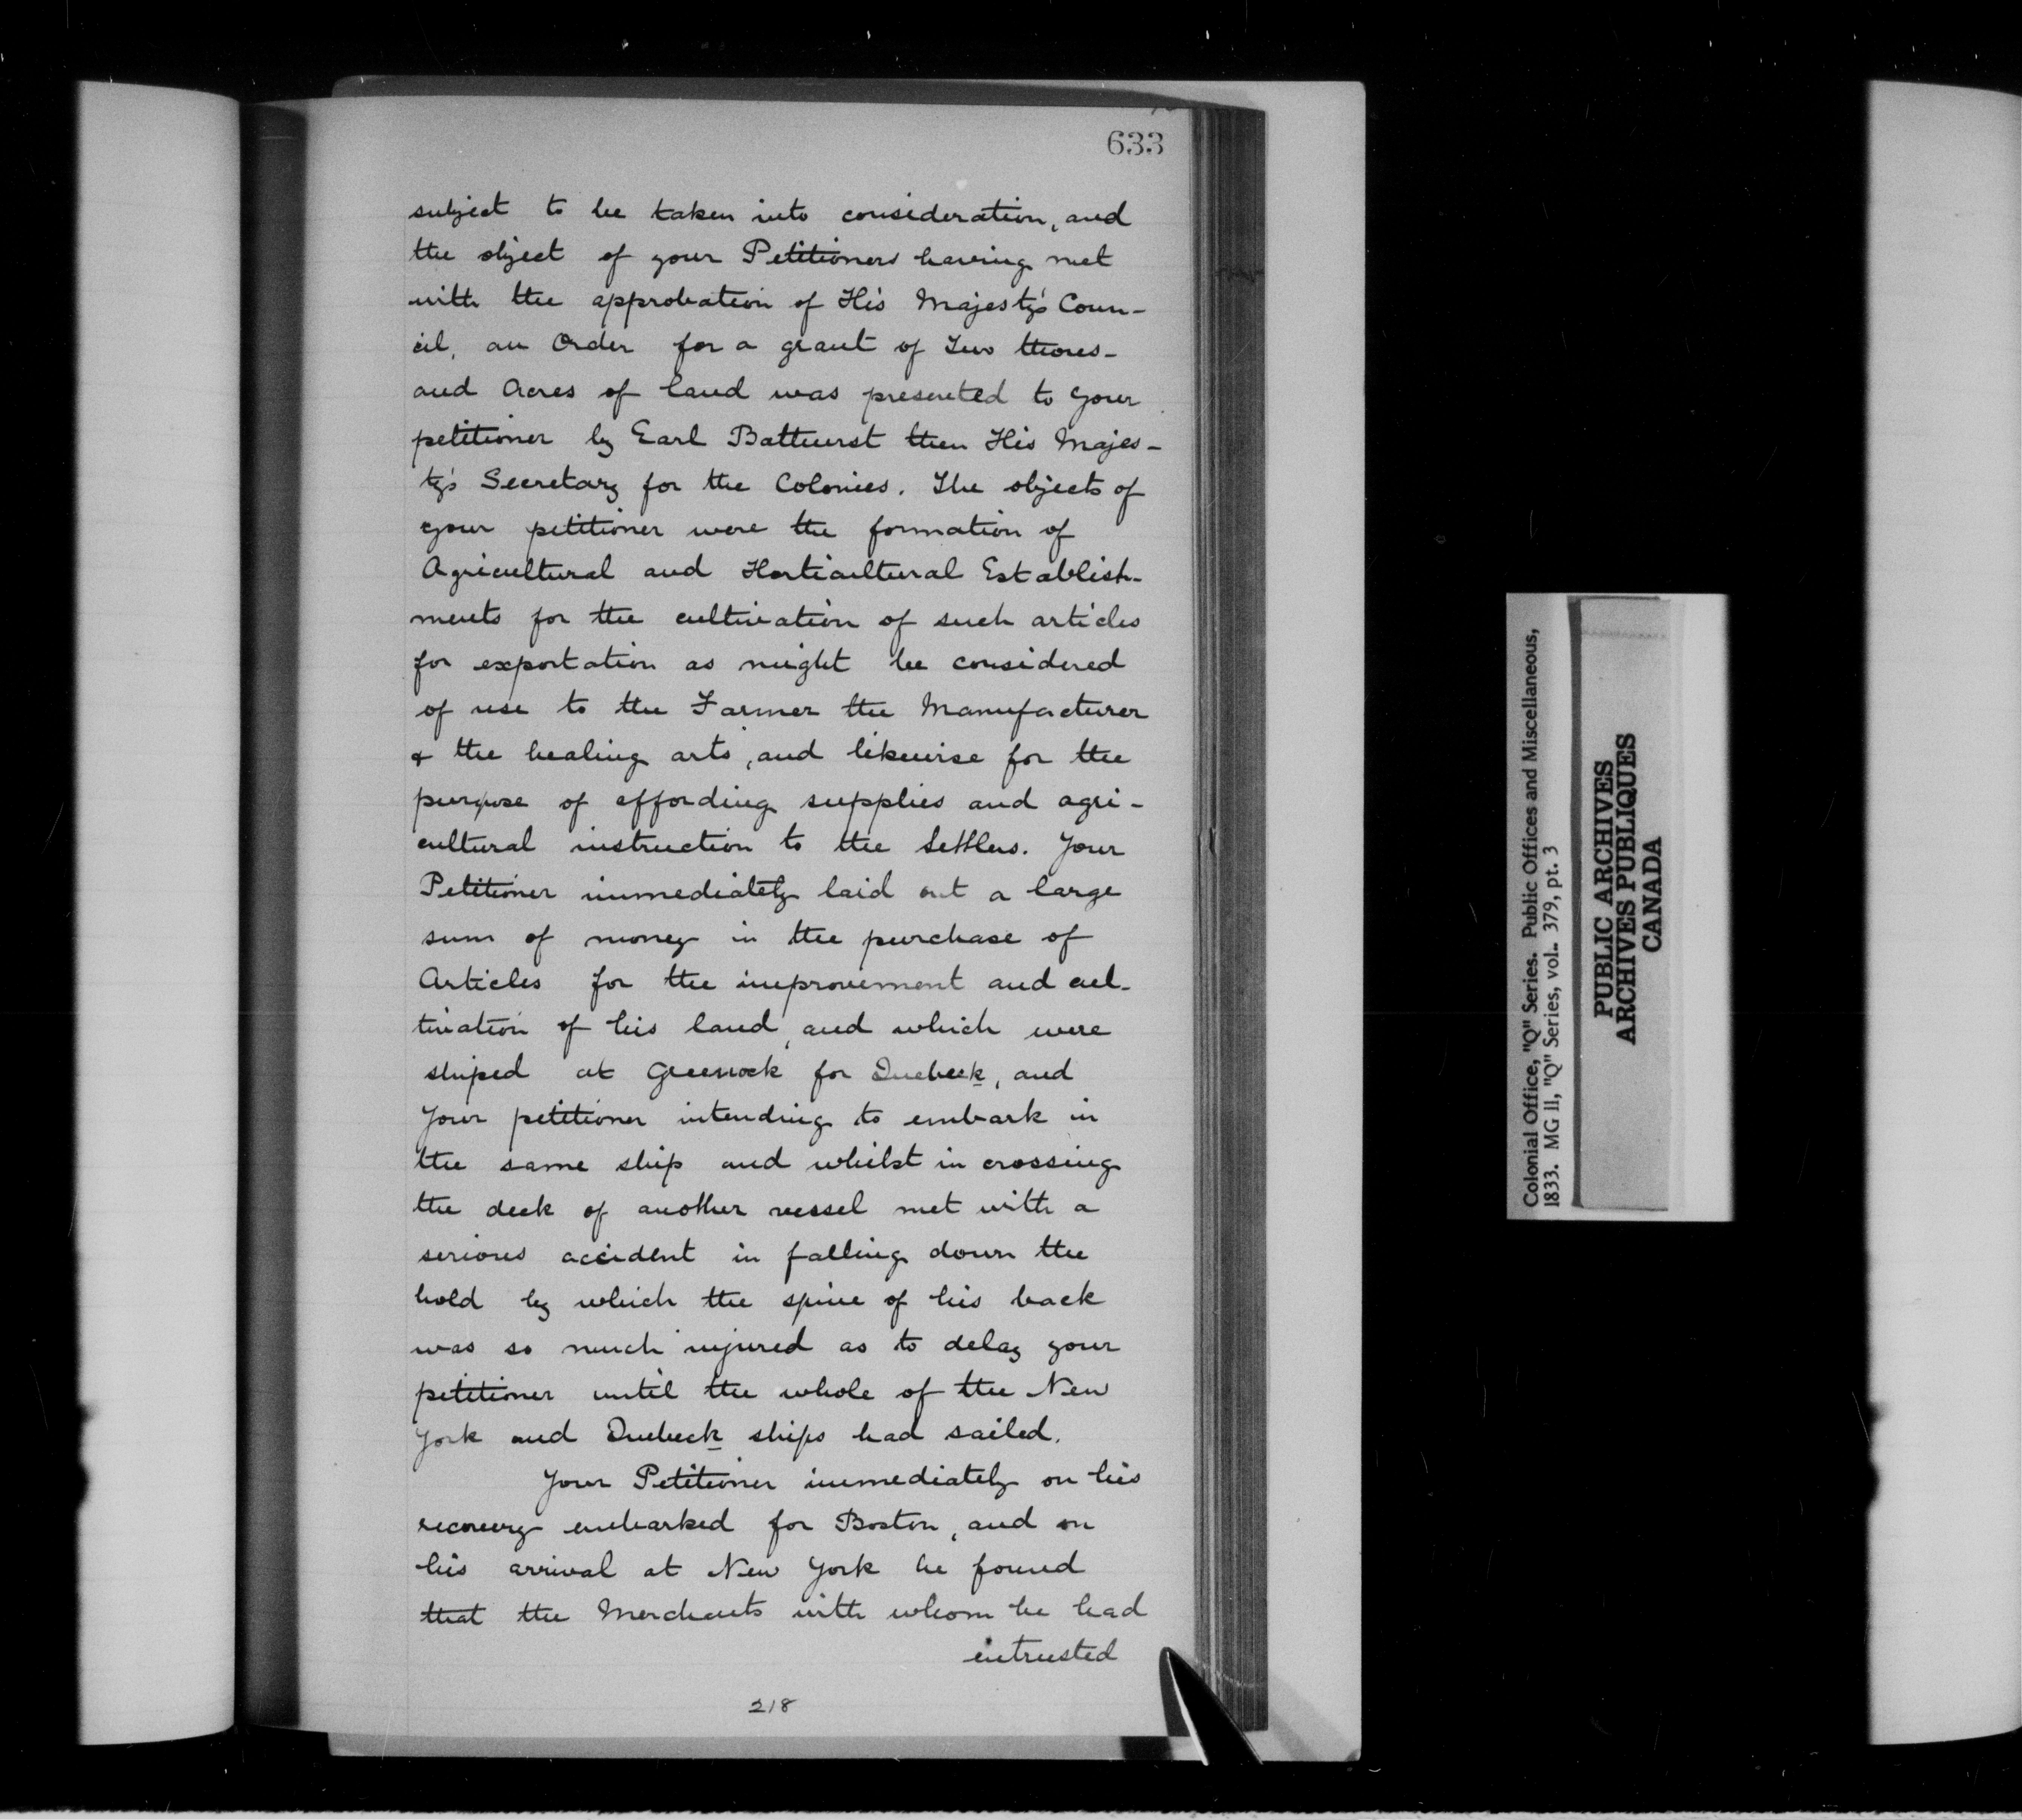 633
subject to be taken into consideration, and
the object of your Petitioners having met
with the approbation of His Majesty's Coun-
cil, an Order for a grant of Two thous-
and Acres of land was presented to your
petitioner by Earl Bathurst then His Majes-
ty's Secretary for the Colonies. The objects of
your petitioner were the formation of
Agricultural and Horticultural Establish-
ments for the cultivation of such articles
for exportation as might be considered
of use to the Farmer the Manufacturer
& the healing arts, and likewise for the
purpose of affording supplies and agri-
cultural instruction to the Settlers. Your
Petitioner immediately laid out a large
sum of money in the purchase of
Articles for the improvement and cul-
tivation of his land, and which were
shiped at Greenock for Quebeck, and
Your petitioner intending to embark in
the same ship and whilst in crossing
the deck of another vessel met with a
serious accident in falling down the
hold by which the spine of his back
was so much injured as to delay your
petitioner until the whole of the New
York and Quebeck ships had sailed.
Your Petitioner immediately on his
recovery embarked for Boston, and on
his arrival at New York he found
that the Merchants with whom he had
entrusted
218
Colonial Office, "Q" Series. Public Offices and Miscellaneous,
1833. MG 11, "Q" Series, vol. 379, pt. 3
PUBLIC ARCHIVES
ARCHIVES PUBLIQUES
CANADA